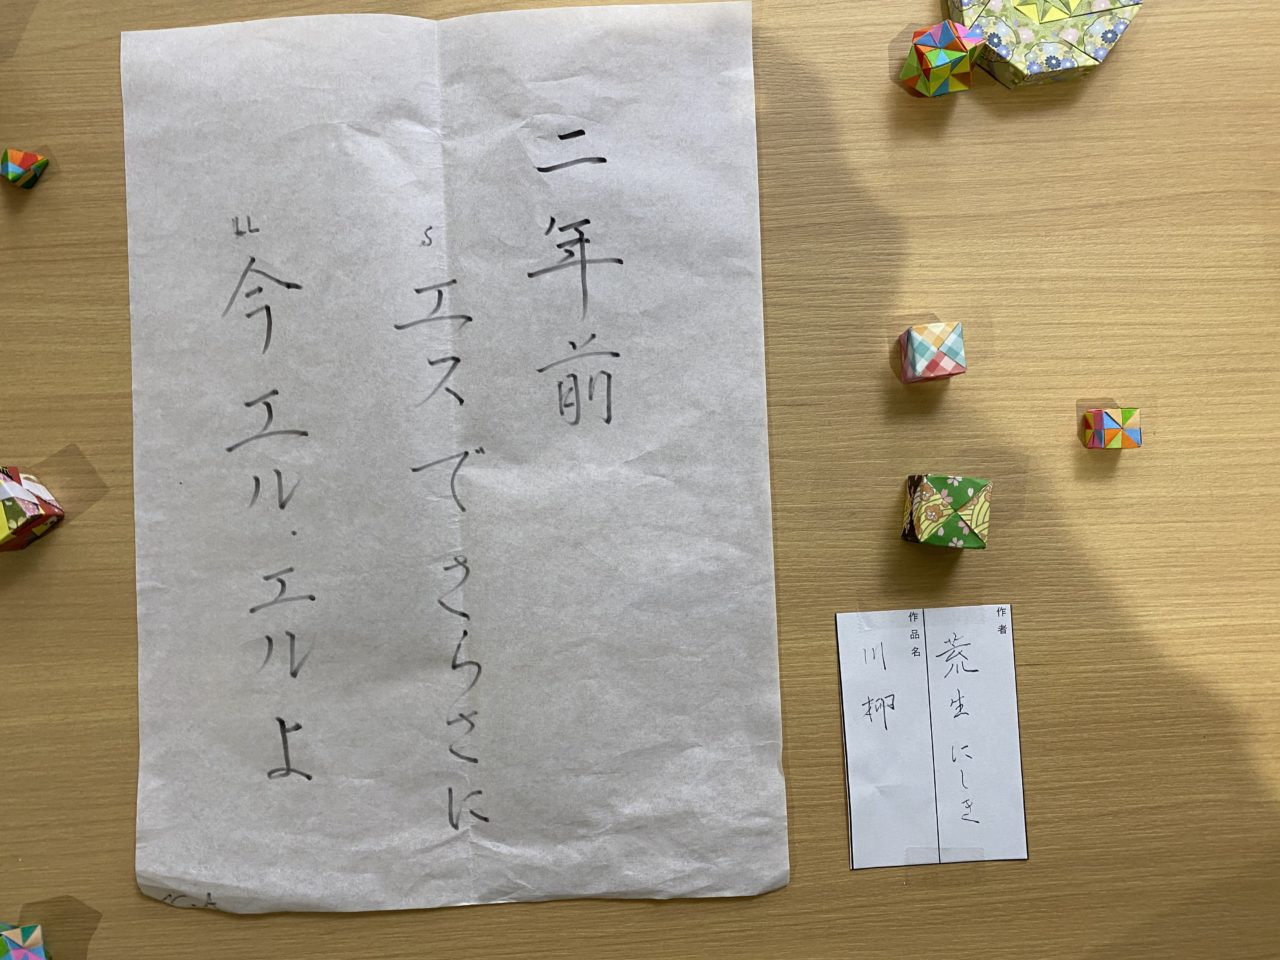 二年前
S
エスでさらさに
LL
今エル・エルよ
作者
荒生にしき
作品名
川柳